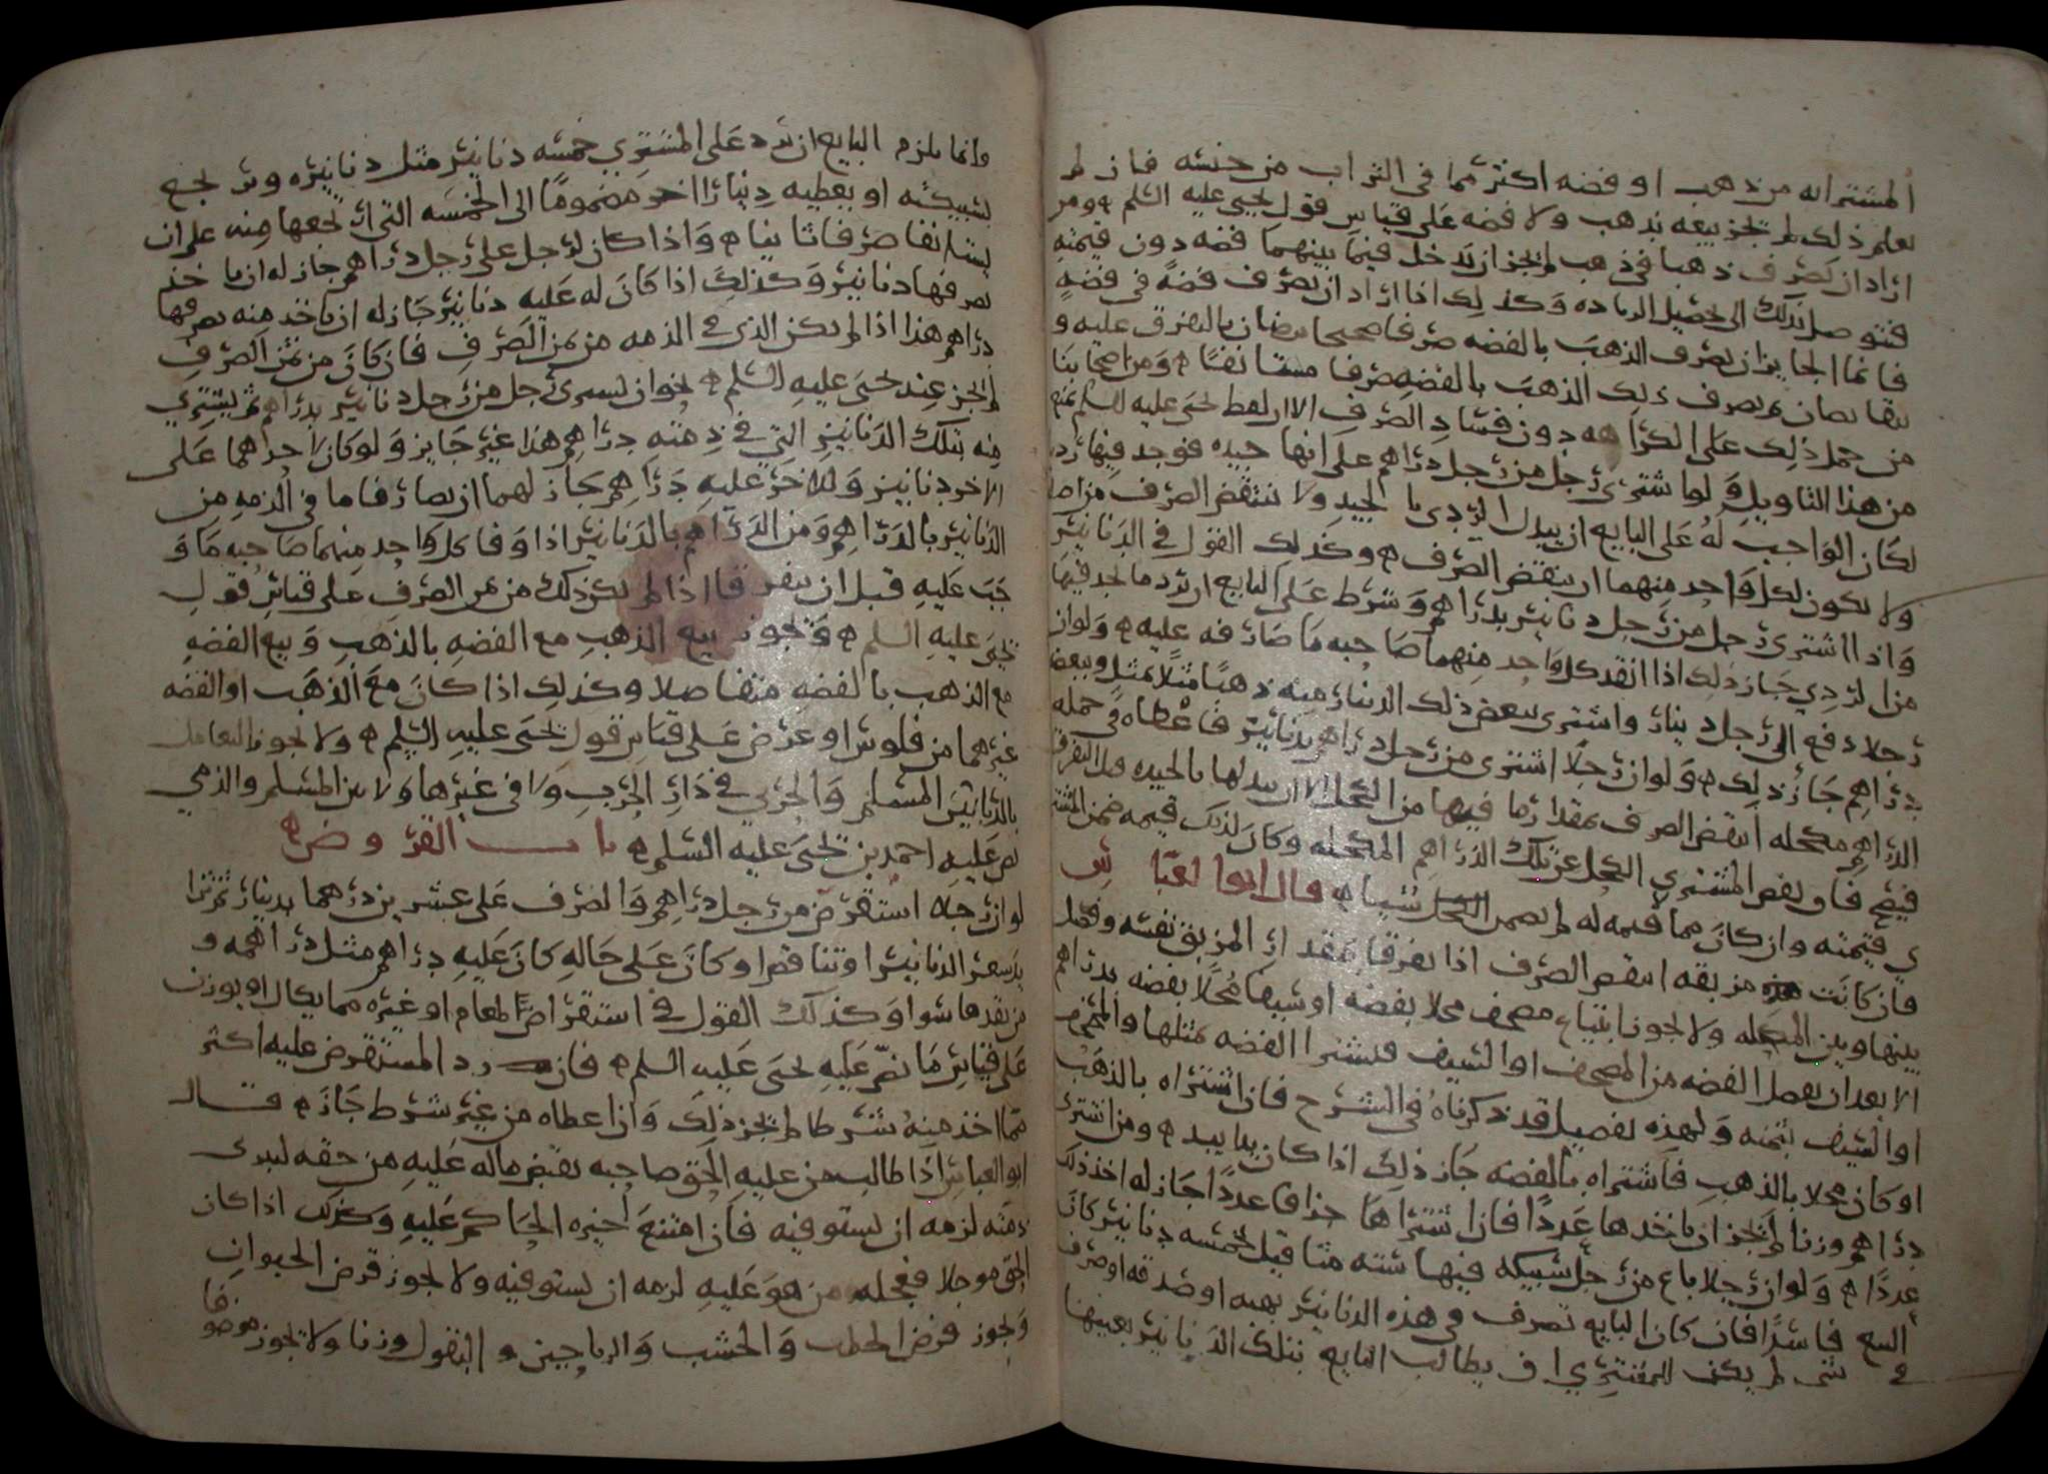 المشتراله من ذهب او فضه اكثر مما في التراب من جنسه فان لم
يعلم ذلك لم يجز بيعه بذهب ولا فضه على قياس قول يحيى عليه السلم ومن
اراد ان يصرف ذهبا في ذهب لم يجز ان يدخل فيما بينهما فضه دون قيمته
فيتوصل بذلك الى تحصيل الزياده وكذلك اذا اراد ان يصرف فضة في فضة
فانما الجايز ان يصرف الذهب بالفضه صرفا صحيحا بالتفرق عليه و
يصرف ذلك الذهب بالفضه صرفا مستانفا ومن اصحابنا
من حمل ذلك على الكراهه دون فساد الصرف الا ان لفظ يحيى عليه السلم يمنع
من هذا التاويل ولو اشترى رجل من رجل دراهم على انها جيده فوجد فيها ردي
لكان الواجب له على البايع ان يبدل الردي بالجيد ولا ينتقض الصرف
ولا يكون لكل واحد منهما ان ينقض الصرف وكذلك القول في الدنانير
واذا اشترى رجل من رجل دنانير بدراهم وشرط على البايع ان يرد ما يجد فيها
من الردي جاز ذلك اذا انقد كل واحد منهما صاحبه ما صارفه عليه ولو ان
رجلا دفع الى رجل دينار واشترى ببعض ذلك الدينار منه ذهبا مثلا بمثل وببعضه
دراهم جاز ذلك ولو ان رجلا اشترى من رجل دراهم بدنانير فاعطاه في جمله
الدراهم مكحله انتقض الصرف بمقدار ما فيها من الكحل الا ان يبدلها بالجيده قبل التفرق
فيصح فان نفض المشتري الكحل عن تلك الدراهم المكحله وكان لذلك قيمه ضمن المشتر
ي قيمته وان كان مما لا قيمه له لم يضمن شيا قال ابو العباس
فان كانت مزبقه انتقض الصرف اذا تفرقا بمقدار المزبق نفسه وفصل
بينها وبين المكحله ولا يجوز ابتياع مصحف محلا بفضه او شبهها محلا بفضه بدراهم
الا بعد ان يفصل الفضه من المصحف او السيف فيشترا الفضه بمثلها والمصحف
او السيف بثمنه ولهذه تفصيل قد ذكرناه في الشرح فان اشتراه بالذهب
او كان محلا بالذهب فاشتراه بالفضه جاز ذلك اذا كان يدا بيد ومن اشترى
دراهم وزنا لم يجز ان ياخذها عددا فان اشتراها جزافا عددا جاز له اخذ ذلك
عددا ولو ان رجلا باع من رجل سبيكه فيها سته مثاقيل بخمسه دنانير كان
البيع فاسدا فان كان البايع تصرف في هذه الدنانير بهبه او صدقه او صرف
في شي لم يكن للمشتري ان يطالب البايع بتلك الدنانير بعينها
وانما يلزم البايع ان يرد على المشتري خمسه دنانير مثل دنانيره ويرتجع
سبيكته او يعطيه دينارا اخر مضموما الى الخمسه التي ارتجعها منه على ان
يستانفا صرفا ثانيا واذا كان لرجل على رجل دراهم جاز له ان ياخذ
بصرفها دنانير وكذلك اذا كان له عليه دنانير جاز له ان ياخذ منه بصرفها
دراهم هذا اذا لم يكن الذي في الذمه من ثمن الصرف فان كان من ثمن الصرف
لم يجز عند يحيى عليه السلم نحو ان يشتري رجل من رجل دنانير بدراهم ثم يشتري
منه بتلك الدنانير التي في ذمته دراهم هذا غير جايز ولو كان لاحدهما على
الاخر دنانير وللاخر عليه دراهم جاز لهما ان يصارفا ما في الذمه من
الدنانير بالدراهم ومن الدراهم بالدنانير اذا وفا كل واحد منهما صاحبه ما و
جب عليه قبل ان يتفرقا اذا لم يكن ذلك من ثمن الصرف على قياس قول
يحيى عليه السلم ويجوز بيع الذهب مع الفضه بالذهب وبيع الفضه
مع الذهب بالفضه متفاضلا وكذلك اذا كان مع الذهب او الفضه
غيرهما من فلوس او عرض على قياس قول يحيى عليه السلم ولا يجوز التعامل
بالربا بين المسلم والحربي في دار الحرب ولا في غيرها ولا بين المسلم والذمي
نص عليه احمد بن يحيى عليه السلم باب القروض
لو ان رجلا استقرض من رجل دراهم والصرف على عشرين درهما بدينار ثم تزا
يد سعر الدنانير او تناقص او كان على حاله كان عليه دراهم مثل دراهمه و
من نقدها سوا وكذلك القول في استقراض الطعام او غيره مما يكال او يوزن
على قياس ما نص عليه يحيى عليه السلم فان رد المستقرض عليه اكثر
مما اخذ منه شرطا لم يجز ذلك وان اعطاه من غير شرط جاز قال
ابو العباس اذا طالب من عليه الحق صاحبه بقبض ماله عليه من حقه لتبرى
ذمته لزمه ان يستوفيه فان امتنع اجبره الحاكم عليه وكذلك اذا كان
الحق موجلا فعجله من هو عليه لزمه ان يستوفيه ولا يجوز قرض الحيوان
ويجوز قرض الحطب والخشب والرياحين و البقول وزنا ولا يجوز